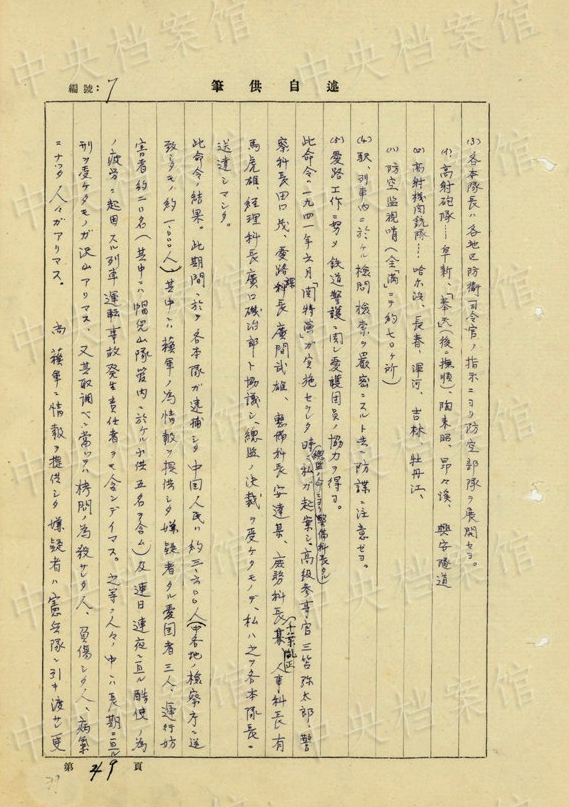 編號：7
筆供自述
(3) 各本隊長ハ各地区防衛司令官ノ指示ニヨリ防空部隊ヲ展開セヨ。
(イ) 高射砲隊……阜新、「奉天」(後ニ撫順)、陶来昭、昂々溪、興安隧道
(ロ) 高射機関銃隊……哈尔浜、長春、渾河、吉林、牡丹江、
(ハ) 防空監視哨(全「満」ニテ約七〇ヶ所)
(4) 駅、列車内ニ於ケル検問検索ヲ厳密ニスルト共ニ防諜ニ注意セヨ。
(5) 愛路工作ニ努メ鉄道警護ニ関シ愛護団員ノ協力ヲ得ヨ。
此命令ハ一九四一年六月「関特演」ガ実施セラレタ時ニ私ガ起案シ、高級参事官三笘弥太郎、警
総監ノ命ニヨリ警備科長タル
察科長田口茂、愛路科長廣間武雄、整備科長安達、庶務科長某、人事科長有
馬虎雄、経理科長廣口磯治郎ト協議シ、総監ノ決裁ヲ受ケタモノデ、私ハ之ヲ各本隊長ニ
送達シマシタ。
此命令ノ結果。此期間ニ於テ各本隊ガ逮捕シタ中国人民ハ約三、六〇〇人(中各地ノ検察庁ニ送
致シタモノ約一、〇〇〇人)其中ニハ蘇軍ノ為情報ヲ提供シタ嫌疑者タル愛国者三人、運行妨
害者約二〇名(其中ニハ帽児山隊管内ニ於ケル子供五名ヲ含ム)及連日連夜ニ亘ル酷使ノ為
ノ疲労ニ起因スル列車運転事故発生責任者ヲモ含ンデイマス。之等ノ人々ノ中ニハ長期ニ亘ル
刑ヲ受ケタモノガ沢山アリマス、又其取調ベニ常ッテハ拷問ノ為殺サレタ人、負傷シタ人、病気
ニナッタ人々ガアリマス。尚蘇軍ニ情報ヲ提供シタ嫌疑者ハ憲兵隊ニ引キ渡サレ更
第 49 頁
中央档案馆